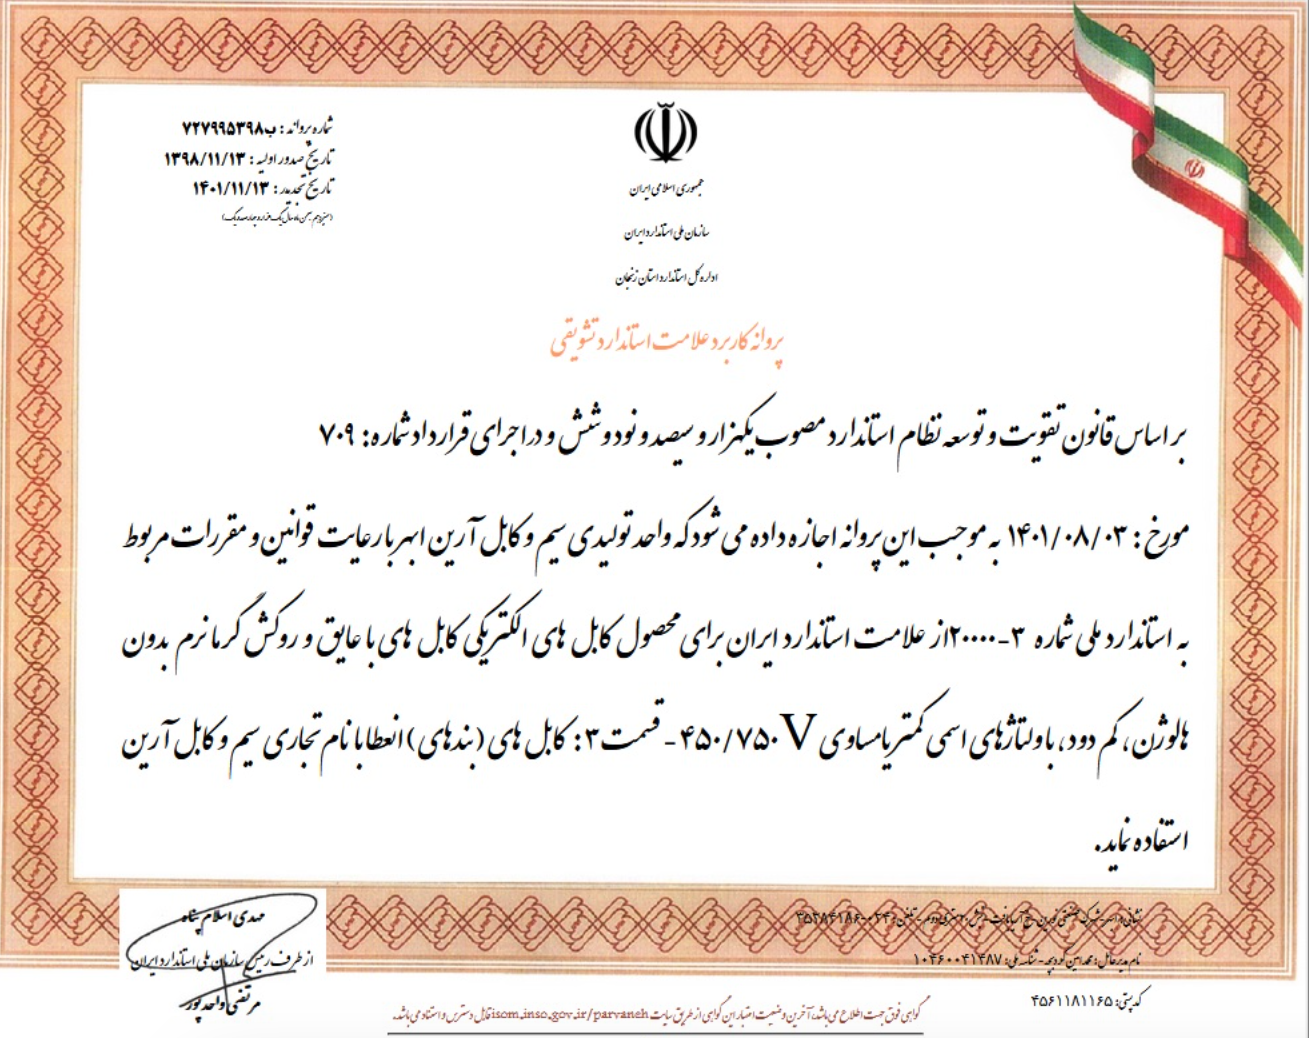 شماره پروانه : ب۷۲۷۹۹۵۳۹۸
تاریخ صدور اولیه : ۱۳۹۸/۱۱/۱۳
تاریخ تمدید : ۱۴۰۱/۱۱/۱۳
(سیزدهم بهمن ماه سال یک هزار و چهارصد و یک)
جمهوری اسلامی ایران
سازمان ملی استاندارد ایران
اداره کل استاندارد استان زنجان
پروانه کاربرد علامت استاندارد تشویقی
بر اساس قانون تقویت و توسعه نظام استاندارد مصوب یکهزار و سیصد و نود و شش و در اجرای قرارداد شماره: ۷۰۹
مورخ : ۱۴۰۱/۰۸/۰۳ به موجب این پروانه اجازه داده می شود که واحد تولیدی سیم و کابل آرین ابهر با رعایت قوانین و مقررات مربوط
به استاندارد ملی شماره ۳-۲۰۰۰۰از علامت استاندارد ایران برای محصول کابل های الکتریکی کابل های با عایق و روکش گرمانرم بدون
هالوژن، کم دود، با ولتاژهای اسمی کمتر یا مساوی ۴۵۰/۷۵۰V - قسمت ۳: کابل های (بندهای) انعطا با نام تجاری سیم و کابل آرین
استفاده نماید.
مهدی اسلام پناه
از طرف رییس سازمان ملی استاندارد ایران
مرتضی واحدپور
نشانی: ابهر-شرکت صنعتی نورین-تلفن: ۰۲۴-۳۵۳۸۴۱۸۶
نام مدیرعامل: محمدامین - شناسه ملی: ۱۰۴۶۰۰۴۱۴۸۷
کدپستی: ۴۵۶۱۱۸۱۱۶۵
گواهی فوق جهت اطلاع می باشد، آخرین وضعیت اعتبار این گواهی از طریق سایت isom.inso.gov.ir/parvaneh قابل دسترس و استناد می باشد.